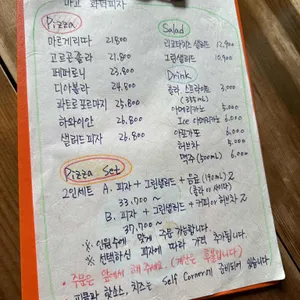 화덕피자
Pizza
마르게리따 21.800
고르곤졸라 21.800
페퍼로니 23.800
디아볼라 24.800
콰트로포르마지 25.800
하와이안 26.800
샐러드피자 26.800
Salad
리코타치즈 샐러드 12,900
그린샐러드 10,900
Drink
콜라 스프라이트 3,000
(355ml)
아메리카노 5.000
Ice 아메리카노 6.000
아포가또 6.000
허브차 5.000
맥주 (500ml) 6.000
Pizza Set
2인세트 A. 피자 + 그린샐러드 + 음료 (190ml) 2
33,700 ~
B. 피자 + 그린샐러드 + 커피or허브차 2
37,700 ~
※ 인원수에 맞게 주문 가능합니다
※ 선택하신 피자에 따라 가격 추가됩니다.
• 주문은 앞에서 해주세요
피클과 핫소스, 치즈는 Self Corner에 준비되어 있습니다